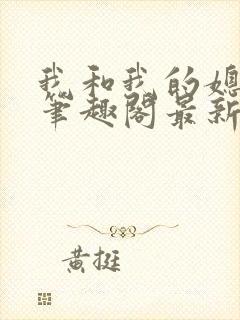 我和我的媳
笔趣阁最新
黄挺